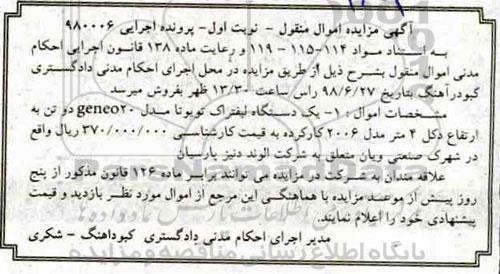 آگهی مزایده اموال منقول - نوبت اول- پرونده اجرایی ۹۸۰۰۰۶
به استناد مواد ۱۱۴-۱۱۵ - ۱۱۹ و رعایت ماده ۱۳۸ قانون اجرایی احکام
مدنی اموال منقول بشرح ذیل از طریق مزایده در محل اجرای احکام مدنی دادگستری
کبودرآهنگ بتاریخ ۹۸/۶/۲۷ راس ساعت ۱۳/۳۰ ظهر بفروش میرسد
مشخصات اموال : ۱- یک دستگاه لیفتراک تویوتا مدل geneo۲۰ دو تن به
ارتفاع دکل ۴ متر مدل ۲۰۰۶ کارکرده به قیمت کارشناسی ۳۷۰/۰۰۰/۰۰۰ ریال واقع
در شهرک صنعتی ویان متعلق به شرکت الوند دنیز پارسیان
علاقه مندان به شرکت در مزایده می توانند برابر ماده ۱۲۶ قانون مذکور از پنج
روز پیش از موعد مزایده با هماهنگی این مرجع از اموال مورد نظر بازدید و قیمت
پیشنهادی خود را اعلام نمایند.
مدیر اجرای احکام مدنی دادگستری کبوداهنگ - شکری
پایگاه اطلاع رسانی مناقصه و مزایده